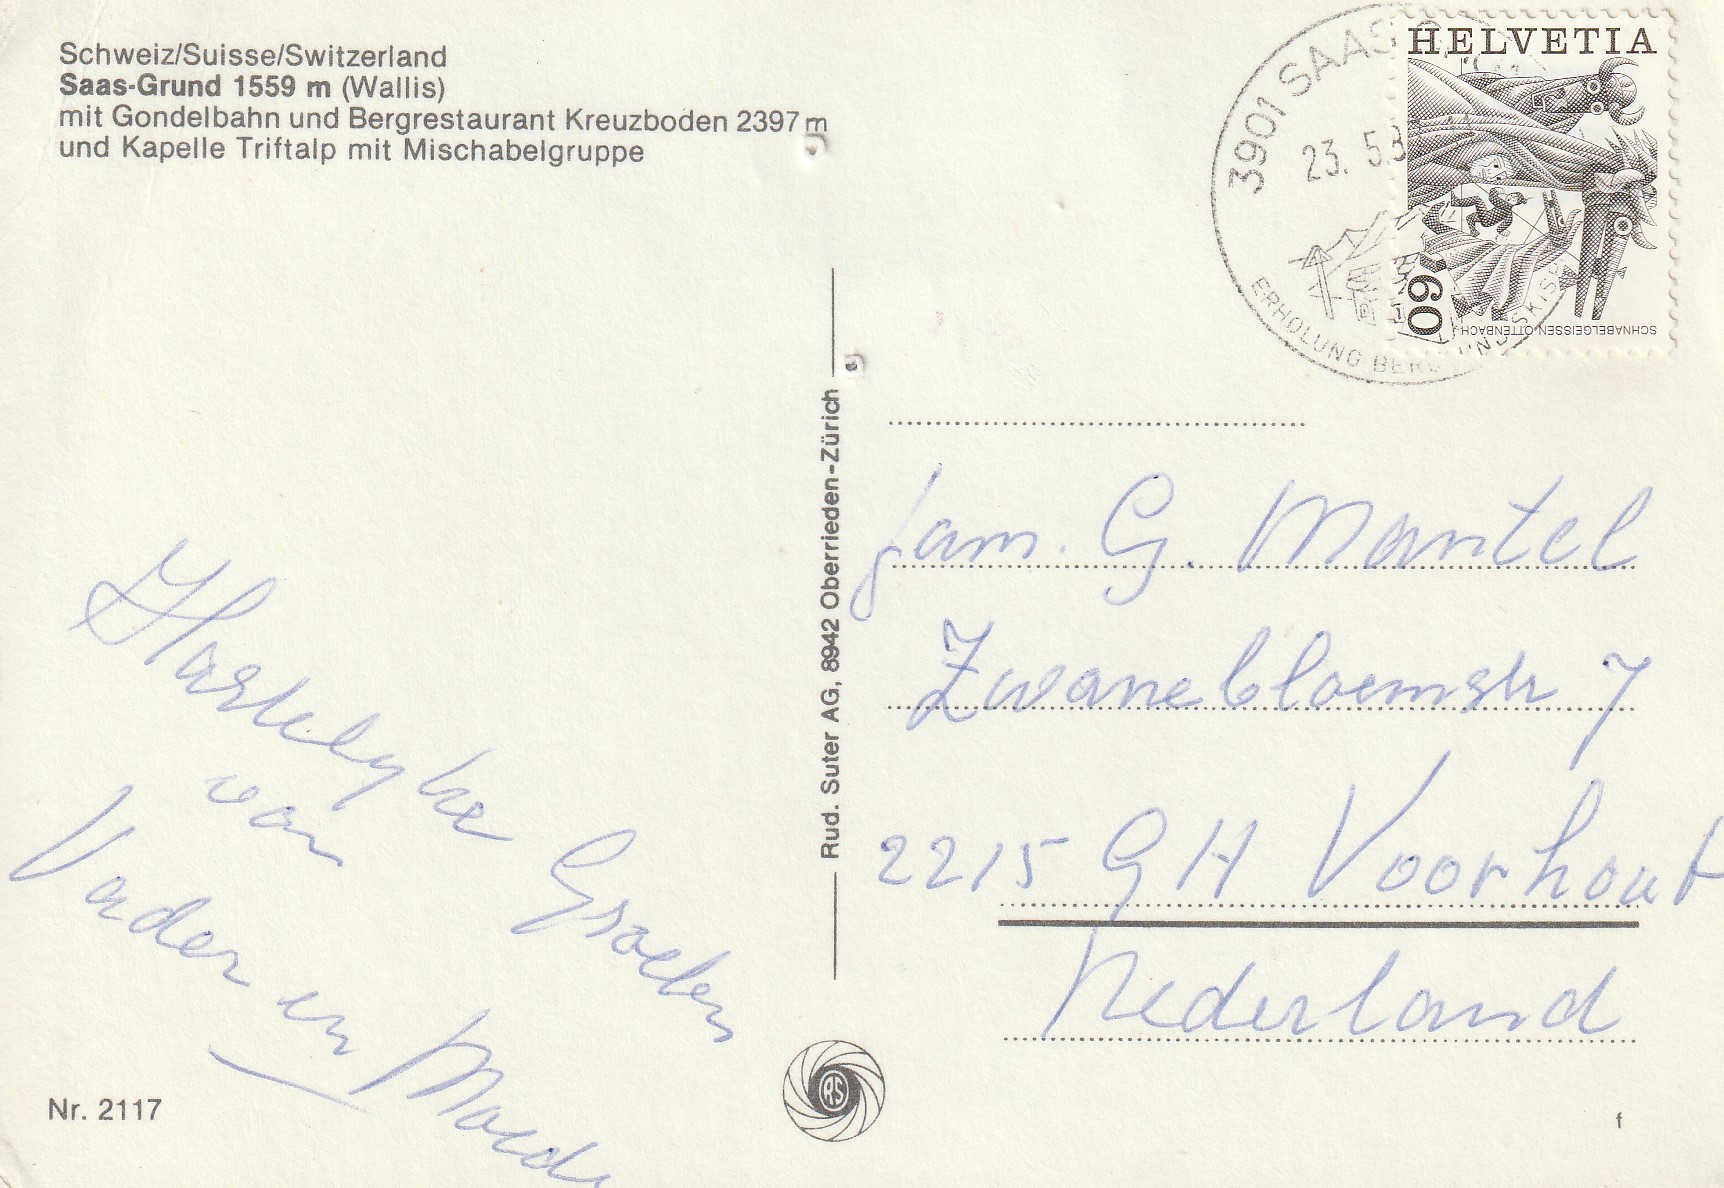 Schweiz/Suisse/Switzerland
Saas-Grund 1559 m (Wallis)
mit Gondelbahn und Bergrestaurant Kreuzboden 2397 m
und Kapelle Triftalp mit Mischabelgruppe
3901 SAAS
23. 5.8
ERHOLUNG BERG UND SKISP
HELVETIA
60
SCHNABELGEISSEN OTTENBACH
Rud. Suter AG, 8942 Oberrieden-Zürich
fam. G. Mantel
Zwanebloemstr 7
2215 GH Voorhout
Nederland
Hartelyke Groeten
van
Vader en Moeder
RS
Nr. 2117
f